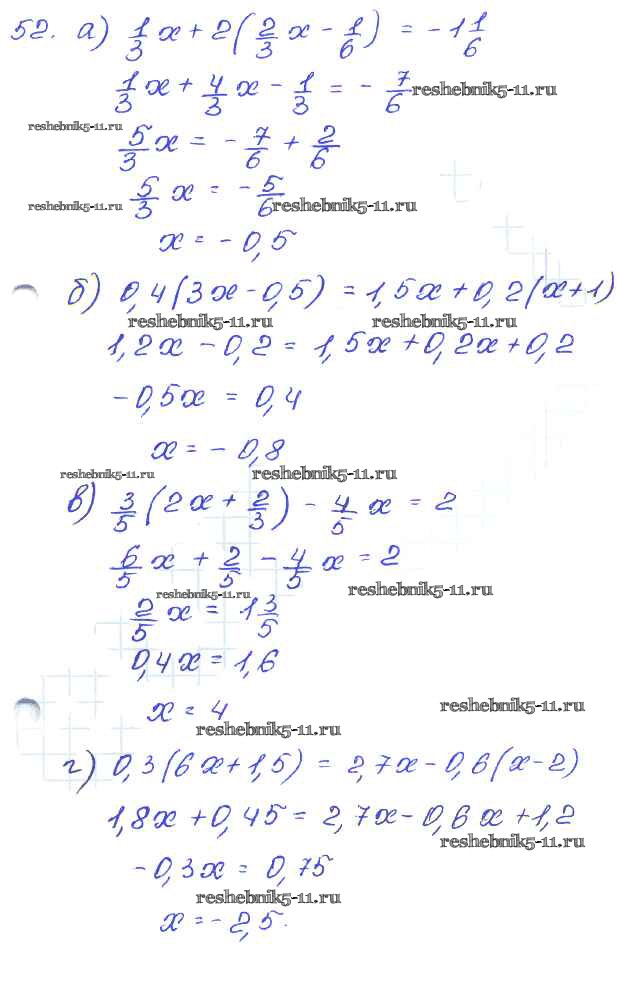 52. а) 1/3 x + 2(2/3 x - 1/6) = - 1 1/6
1/3 x + 4/3 x - 1/3 = - 7/6 reshebnik5-11.ru
reshebnik5-11.ru 5/3 x = - 7/6 + 2/6
reshebnik5-11.ru 5/3 x = - 5/6 reshebnik5-11.ru
x = - 0,5
б) 0,4(3x - 0,5) = 1,5x + 0,2(x+1)
reshebnik5-11.ru reshebnik5-11.ru
1,2x - 0,2 = 1,5x + 0,2x + 0,2
- 0,5x = 0,4
x = - 0,8
reshebnik5-11.ru reshebnik5-11.ru
в) 3/5 (2x + 2/3) - 4/5 x = 2
6/5 x + 2/5 - 4/5 x = 2
reshebnik5-11.ru reshebnik5-11.ru
2/5 x = 1 3/5
0,4x = 1,6
x = 4 reshebnik5-11.ru
reshebnik5-11.ru
г) 0,3(6x + 1,5) = 2,7x - 0,6(x - 2)
1,8x + 0,45 = 2,7x - 0,6x + 1,2
reshebnik5-11.ru
- 0,3x = 0,75
reshebnik5-11.ru
x = - 2,5.